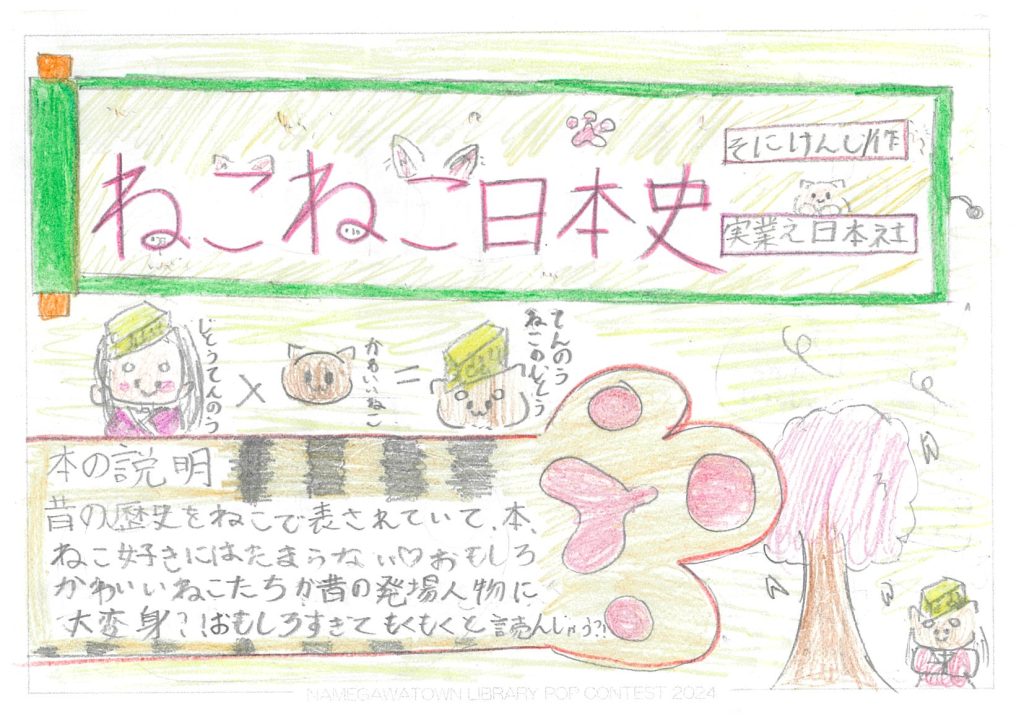 ねこねこ日本史
そにけんじ/作
実業え日本社
じとうてんのう
×
かわいいねこ
=
ねこのじとう
てんのう
本の説明
昔の歴史をねこで表されていて、本、
ねこ好きにはたまらない♡おもしろ
かわいいねこたちが昔の発場人物に
大変身?!おもしろすぎてもくもくと読んじゃう?!
NAMEGAWATOWN LIBRARY POP CONTEST 2024